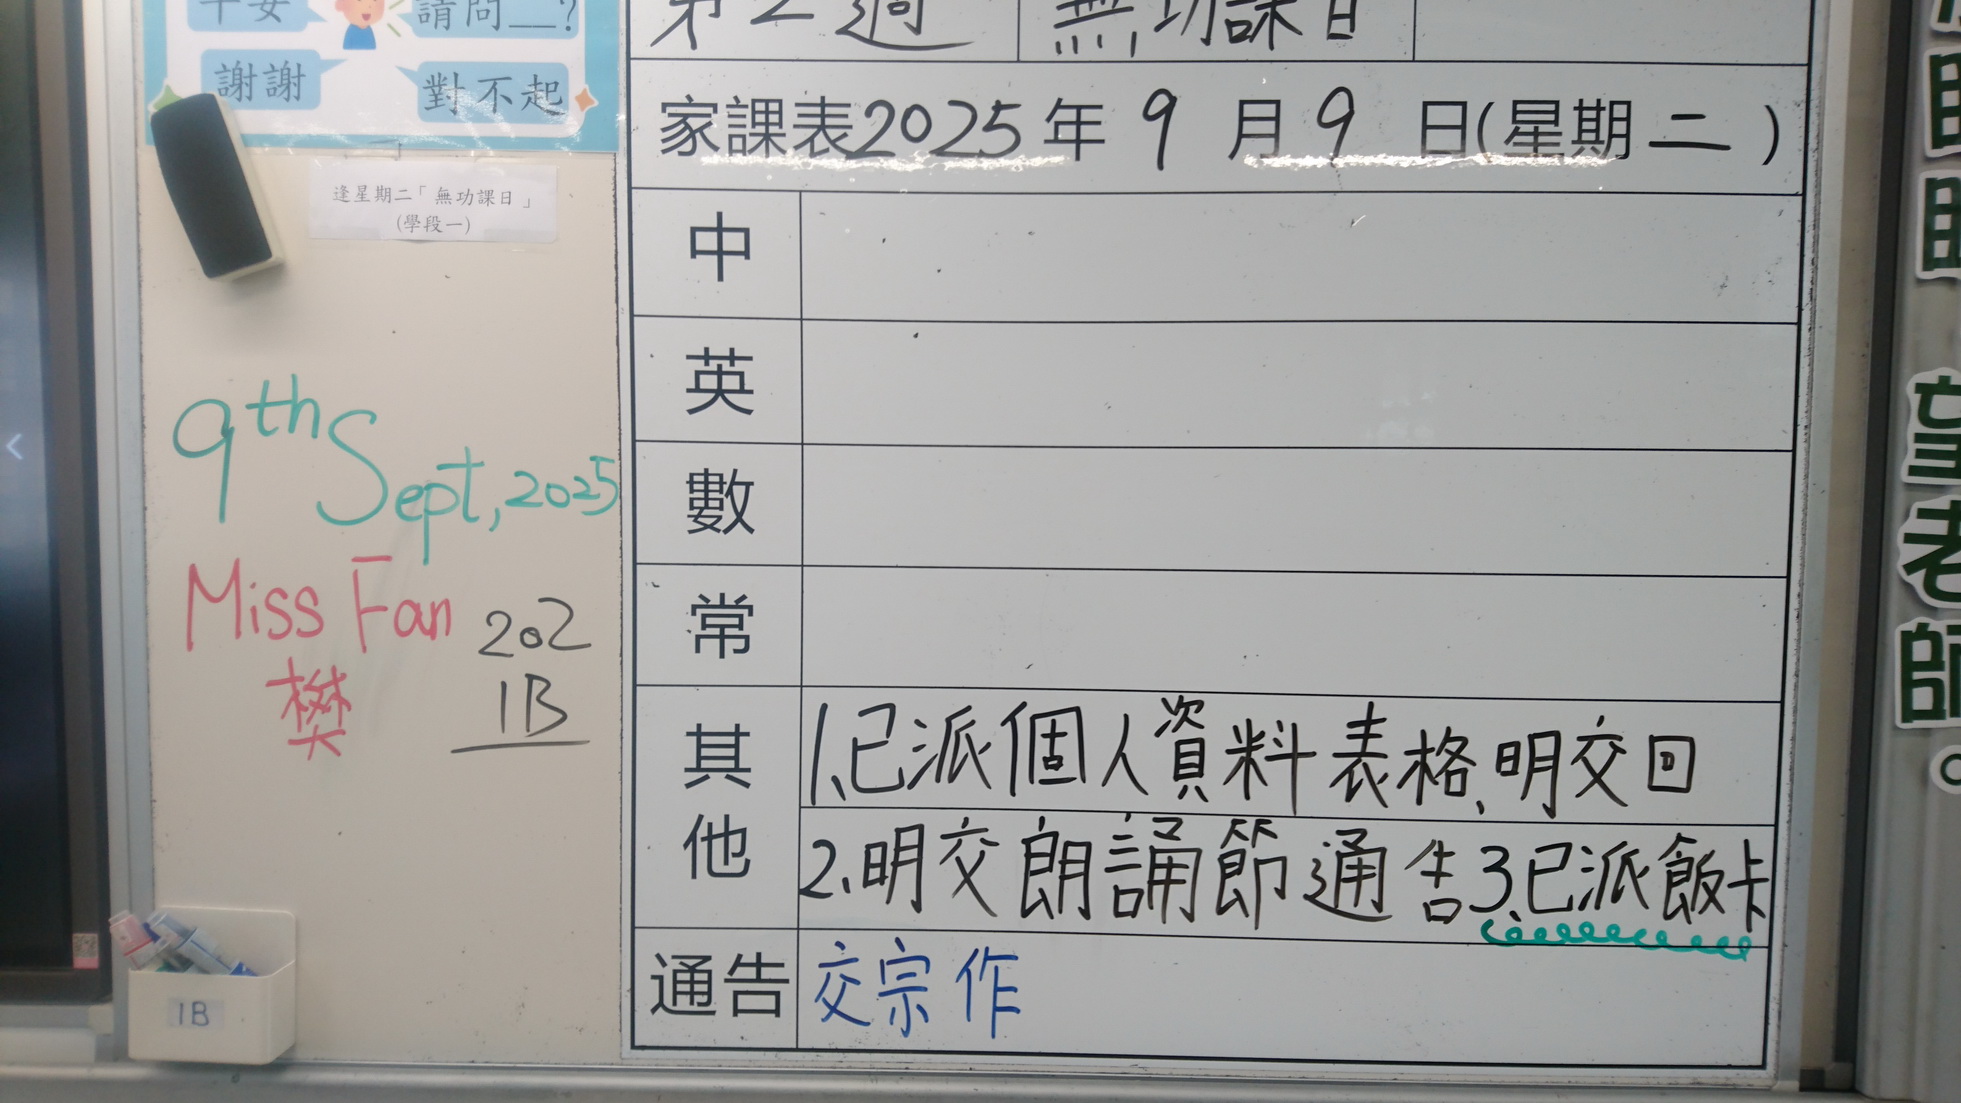 平安
請問__?
謝謝
對不起
逢星期二「無功課日」
(學段一)
9th Sept, 2025
Miss Fan
樊
202
1B
1B
第2週
無功課日
家課表2025年9月9日(星期二)
中
英
數
常
其他
1.已派個人資料表格,明交回
2.明交朗誦節通告3.已派飯卡
通告
交宗作
望老師。